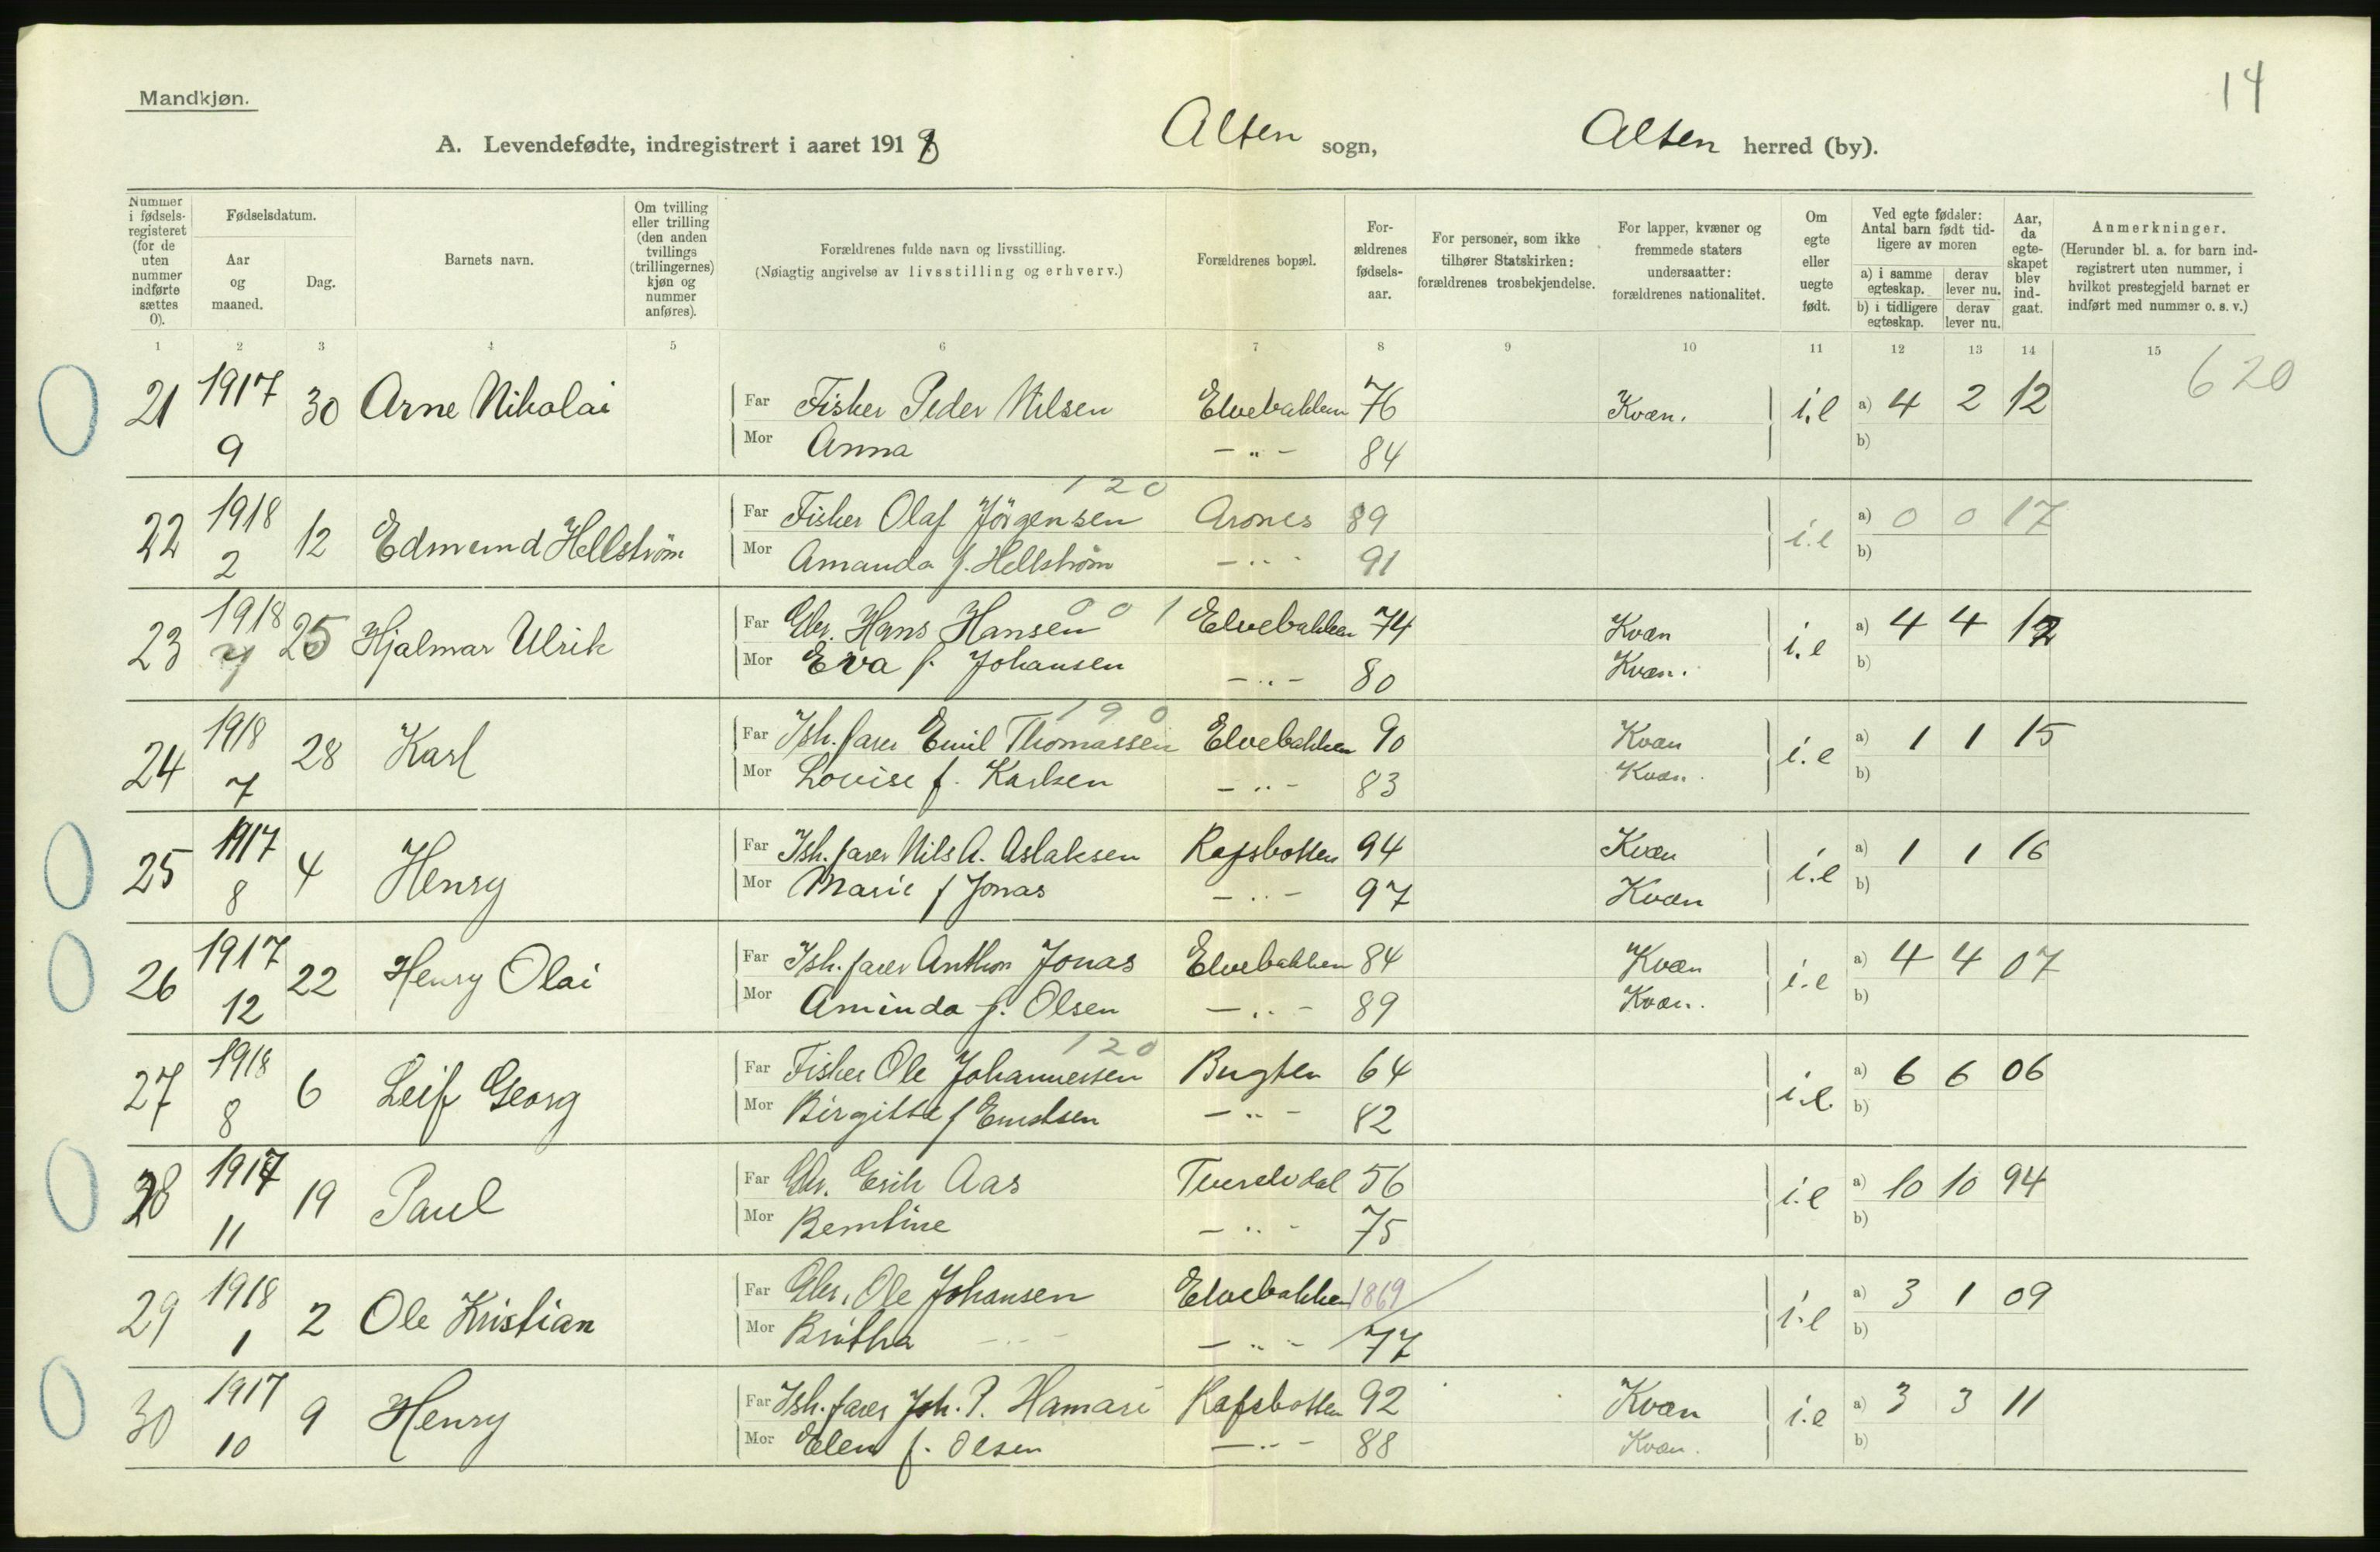 14
Mandkjøn.
A. Levendefødte, indregistrert i aaret 1918 Alten sogn, Alten herred (by).
Nummer i fødsels-registeret (for de uten nummer indførte sættes 0).
Fødselsdatum.
Aar og maaned.
Dag.
Barnets navn.
Om tvilling eller trilling (den anden tvillings (trillingernes) kjøn og nummer anføres).
Forældrenes fulde navn og livsstilling.
(Nøiagtig angivelse av livsstilling og erhverv.)
Forældrenes bopæl.
For-ældrenes fødsels-aar.
For personer, som ikke tilhører Statskirken: forældrenes trosbekjendelse.
For lapper, kvæner og fremmede staters undersaatter: forældrenes nationalitet.
Om egte eller uegte født.
Ved egte fødsler: Antal barn født tid-ligere av moren
a) i samme egteskap. derav lever nu.
b) i tidligere egteskap. derav lever nu.
Aar, da egte-skapet blev ind-gaat.
Anmerkninger.
(Herunder bl. a. for barn ind-registrert uten nummer, i hvilket prestegjeld barnet er indført med nummer o. s. v.)
1 2 3 4 5 6 7 8 9 10 11 12 13 14 15
620
21 1917 9 30 Arne Nikolai Far Fisker Peder Nilsen Elvebakken 76 Kvæn. i.e a) 4 2 12
Mor Anna — " — 84 b)
120
22 1918 2 12 Edmund Hellström Far Fisker Olaf Jörgensen Arones 89 i.e a) 0 0 17
Mor Amanda f. Hellström — " — 91 b)
0 0 1
23 1918 25 Hjalmar Ulrik Far Gbr. Hans Hansen Elvebakken 74 Kvæn i.e a) 4 4 12
Mor Eva f. Johansen — " — 80 Kvæn. b)
190
24 1918 7 28 Karl Far Ish.farer Emil Thomassen Elvebakken 90 Kvæn i.e a) 1 1 15
Mor Lovise f. Karlsen — " — 83 Kvæn. b)
25 1917 8 4 Henry Far Ish.farer Nils A. Aslaksen Rafsbotten 94 Kvæn i.e a) 1 1 16
Mor Marie f Jonas — " — 97 Kvæn b)
26 1917 12 22 Henry Olai Far Ish.farer Anthon Jonas Elvebakken 84 Kvæn i.e a) 4 4 07
Mor Aminda f. Olsen — " — 89 Kvæn. b)
120
27 1918 8 6 Leif Georg Far Fisker Ole Johannessen Bugten 64 i.e. a) 6 6 06
Mor Birgitte f — " — 82 b)
28 1917 11 19 Paul Far Gbr. Erik Aas 56 i.e a) 10 10 94
Mor Berntine — " — 75 b)
29 1918 1 2 Ole Kristian Far Gbr. Ole Johansen Elvebakken 1869 i.e a) 3 1 09
Mor — " — — " — 77 b)
30 1917 10 9 Henry Far Ish.farer Joh. P. Hamari Rafsbotten 92 Kvæn i.e a) 3 3 11
Mor Elen f. Olsen — " — 88 Kvæn. b)